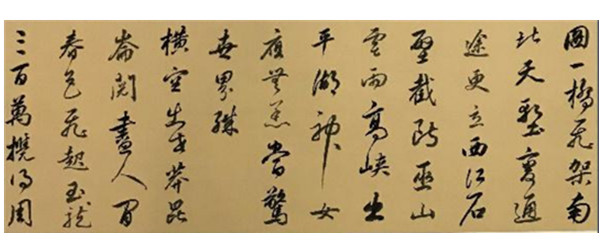 圖一橋飛架南
北天塹變通
途更立西江石
壁截斷巫山
雲雨高峽出
平湖神女
應無恙當驚
世界殊
橫空出世莽昆
崙閱盡人間
春色飛起玉龍
三百萬攪得周